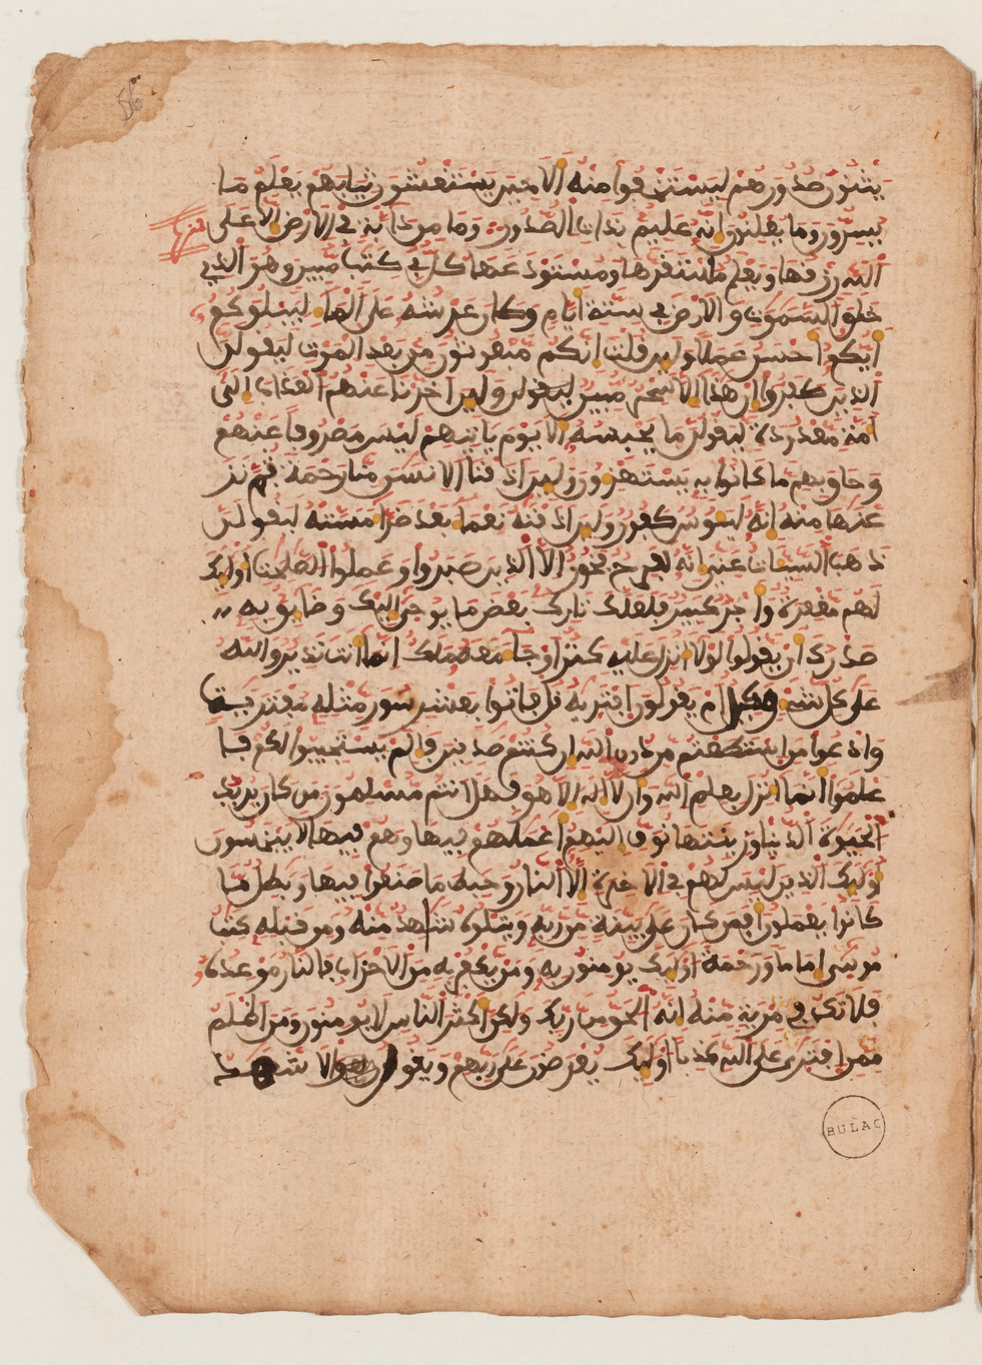 يثنون صدورهم ليستخفوا منه الا حين يستغشون ثيابهم يعلم ما
يسرون وما يعلنون انه عليم بذات الصدور وما من دابة في الارض الا على
الله رزقها ويعلم مستقرها ومستودعها كل في كتب مبين وهو الذي
خلق السموت والارض في ستة ايام وكان عرشه على الماء ليبلوكم
ايكم احسن عملا ولين قلت انكم مبعوثون من بعد الموت ليقولن
الذين كفروا ان هذا الا سحر مبين ولين اخرنا عنهم العذاب الى
امة معدودة ليقولن ما يحبسه الا يوم ياتيهم ليس مصروفا عنهم
وحاق بهم ما كانوا به يستهزون ولين اذقنا الانسن منا رحمة ثم نز
عنها منه انه ليوس كفور ولين اذقنه نعما بعد ضرا مسته ليقولن
ذهب السيات عني انه لفرح فخور الا الذين صبروا وعملوا الصلحت اوليك
لهم مغفرة واجر كبير فلعلك تارك بعض ما يوحى اليك وضايق به
صدرك ان يقولوا لولا انزل عليه كنز او جا معه ملك انما انت نذير والله
على كل شي وكيل ام يقولون افتريه قل فاتوا بعشر سور مثله مفتريت
وادعوا من استطعتم من دون الله ان كنتم صدقين فالم يستجيبوا لكم فا
علموا انما انزل بعلم الله وان لا اله الا هو فهل انتم مسلمون من كان يريد
الحيوة الدنيا وزينتها نوف اليهم اعملهم فيها وهم فيها لا يبخسون
اوليك الذين ليس لهم في الاخرة الا النار وحبط ما صنعوا فيها وبطل ما
كانوا يعملون افمن كان على بينة من ربه ويتلوه شاهد منه ومن قبله كتب
موسى اماما ورحمة اوليك يومنون به ومن يكفر به من الاحزاب فالنار موعده
فلا تك في مرية منه انه الحق من ربك ولكن اكثر الناس لا يومنون ومن اظلم
ممن افترى على الله كذبا اوليك يعرضون على ربهم ويقول الاشهد
BULAC